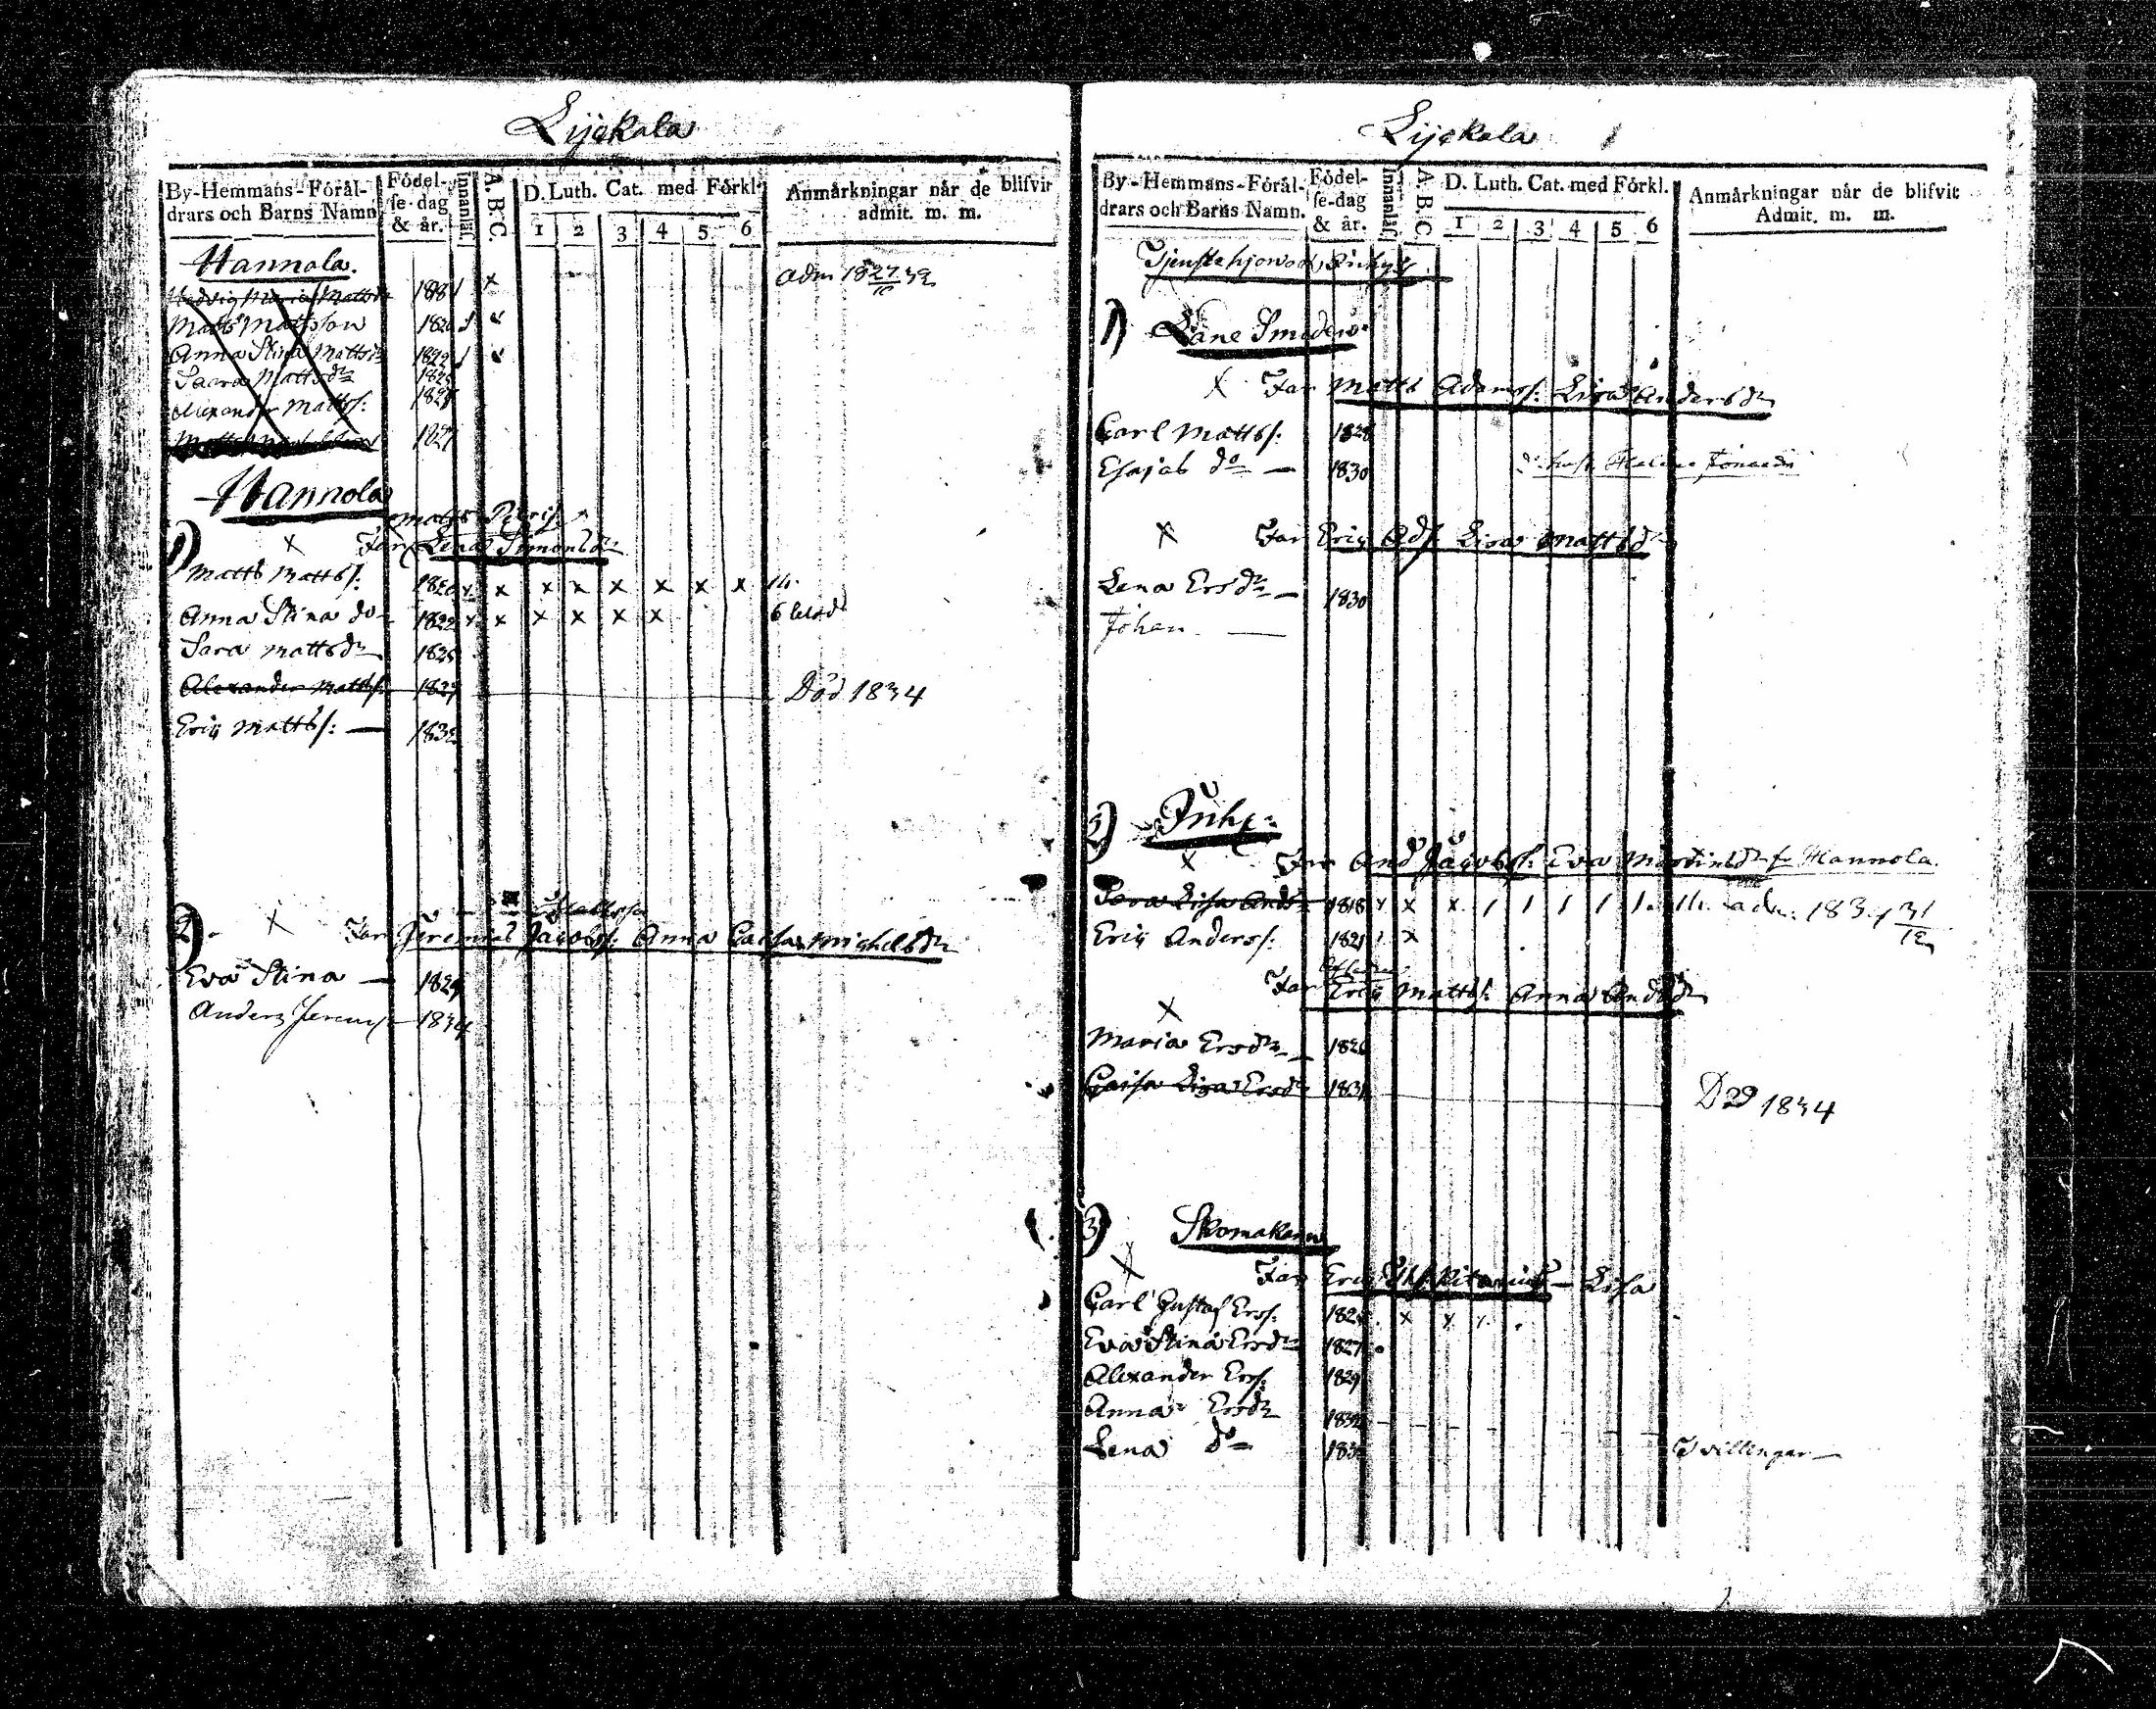 Lijckala
By-Hemmans-Föräl-
drars och Barns Namn
Födel-
se-dag
& år.
Innanläs.
A. B. C.
D. Luth. Cat. med Förkl.
1 2 3 4 5 6
Anmärkningar når de blifvit
admit. m. m.
Hannola.
Hedvig Maria Mattsdr 1818 adm 1827
Matts Mattsson 1820
Anna Stina Mattsdr 1822
Saara Mattsdr 1825
Alexander Mattss: 1827
1827
Hannola
Matts
1) x Far Lena Simonsdr
Matts Mattss: 1820 x x x x x x x x
Anna Stina do 1822 x x x x x x 6
Sara Mattsdr 1825
Alexander Mattss: 1827 Död 1834
Eric Mattss: 1832
2) x Far Jeremias Jacobss: Anna Caisa Michelsdr
Eva Stina 1829
Anders 1834
Lijckala
By-Hemmans-Föräl-
drars och Barns Namn.
Födel-
se-dag
& år.
Innanläs.
A. B. C.
D. Luth. Cat. med Förkl.
1 2 3 4 5 6
Anmärkningar når de blifvit
Admit. m. m.
1) Låne Smeden
x Far Matts Adamss: Lisa Andersdr
Carl Mattss: 1828
Esajas do 1830
x Far Eric Ads: Lisa Mattsdr
Lena Ersdr 1830
Johan
2)
x Far And Jacobss: Eva Martinsdr fr Hannola.
Sara Lisa Ands 1818 x x x 1 1 1 1 1 adm: 1834 31/12
Eric Anderss: 1821 x
Far Eric Mattss: Anna Andsdr
x
Maria Ersdr 1826
Caisa Lisa Ersdr 1831 Död 1834
3) Skomakaren
x Far Eric Lisa
Carl Gustaf Erss: 1825 x x
Eva Stina Ersdr 1827
Alexander Erss: 1829
Anna Ersdr 1832
Lena do 1832 Tvillingar